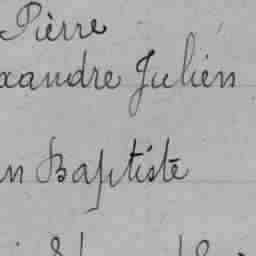 Pierre
xandre Julien
n Baptiste